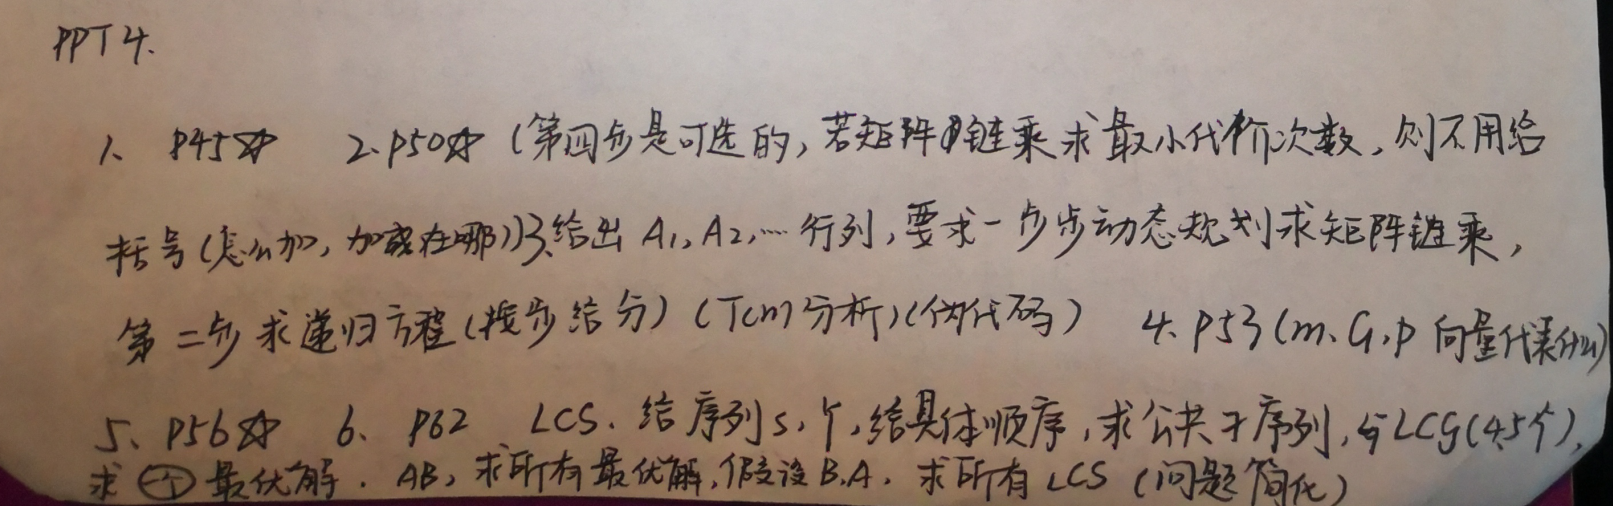 PPT 4.
1、P45☆ 2、P50☆（第四步是可选的，若矩阵链乘求最小代价次数，则不用给
括号（怎么加，加在哪））3、给出 A1, A2, … 行列，要求一步步动态规划求矩阵链乘，
第二步求递归方程（按步给分）（T(n)分析）（伪代码） 4、P53（m、G、P 向量代表什么）
5、P56☆ 6、P62 LCS、给序列 5、个，给具体顺序，求公共子序列，与LCS（4,5个），
求①个最优解．AB，求所有最优解，假设B,A．求所有LCS（问题简化）